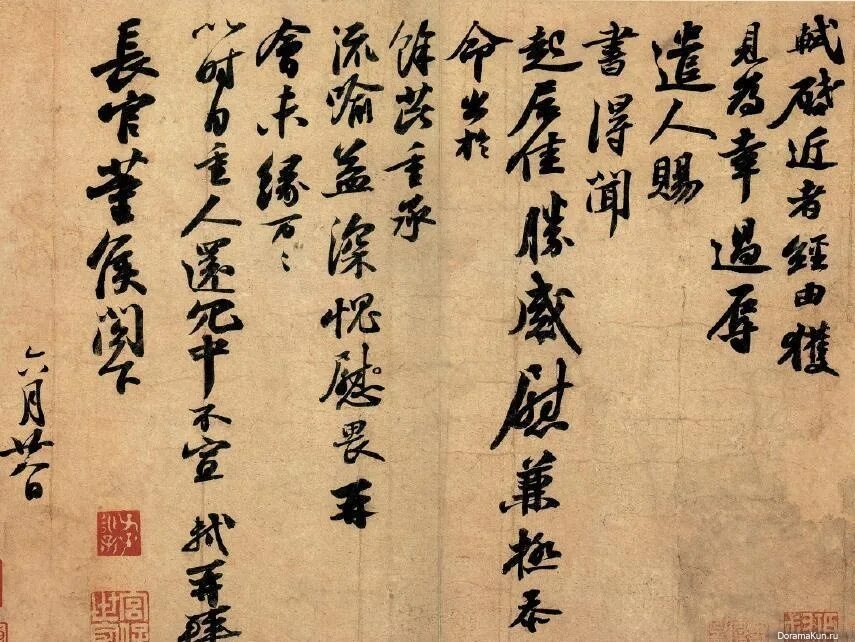 軾啓近者經由獲
見為幸過辱
遣人賜
書得聞
起居佳勝感慰兼極忝
命出於
餘芘重承
流喻益深愧慰畏再
會未緣万〻
以时自重人還冗中不宣 軾再拜
長官董侯閣下
六月廿八日
DoramaKun.ru